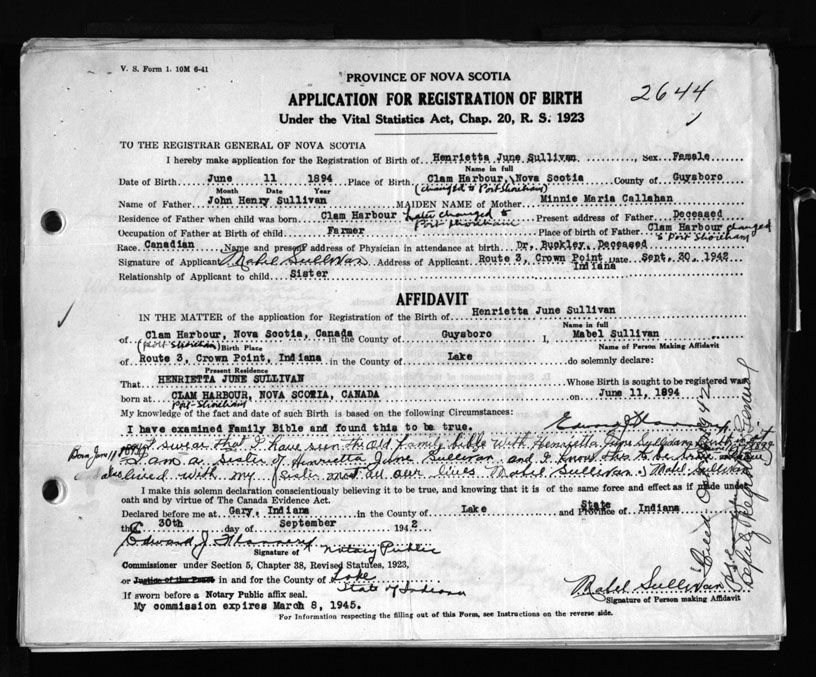 V. S. Form 1. 10M 6-41
PROVINCE OF NOVA SCOTIA
2644
APPLICATION FOR REGISTRATION OF BIRTH
Under the Vital Statistics Act, Chap. 20, R. S. 1923
TO THE REGISTRAR GENERAL OF NOVA SCOTIA
I hereby make application for the Registration of Birth of Henrietta June Sullivan, Sex Female
Name in full
Date of Birth June 11 1894 Place of Birth Clam Harbour, Nova Scotia County of Guysboro
Month Date Year (changed to Port Shoreham)
Name of Father John Henry Sullivan MAIDEN NAME of Mother Minnie Maria Callahan
Residence of Father when child was born Clam Harbour later changed to Port Shoreham Present address of Father Deceased
Occupation of Father at Birth of child Farmer Place of birth of Father Clam Harbour changed to Port Shoreham
Race Canadian Name and present address of Physician in attendance at birth Dr. Buckley, Deceased
Signature of Applicant Mabel Sullivan Address of Applicant Route 3, Crown Point, Indiana Date Sept. 30, 1942
Relationship of Applicant to child Sister
AFFIDAVIT
IN THE MATTER of the application for Registration of the Birth of Henrietta June Sullivan
Name in full
of Clam Harbour, Nova Scotia, Canada in the County of Guysboro I, Mabel Sullivan
(Port Shoreham) Birth Place Name of Person Making Affidavit
of Route 3, Crown Point, Indiana in the County of Lake do solemnly declare:
Present Residence
That HENRIETTA JUNE SULLIVAN Whose Birth is sought to be registered was
born at CLAM HARBOUR, NOVA SCOTIA, CANADA on June 11, 1894
Port Shoreham
My knowledge of the fact and date of such Birth is based on the following Circumstances:
I have examined Family Bible and found this to be true.
I swear that I have seen the old family bible with Henrietta June Sullivans birth in it
Born June 11 1894
I am a sister of Henrietta June Sullivan and I know this to be true
also lived with my sister most all our lives Mabel Sullivan Mabel Sullivan
I make this solemn declaration conscientiously believing it to be true, and knowing that it is of the same force and effect as if made under
oath and by virtue of The Canada Evidence Act.
Declared before me at Gary, Indiana in the County of Lake State and Province of Indiana
this 30th day of September 1942
Edward J. Flannery
Signature of Notary Public
Commissioner under Section 5, Chapter 38, Revised Statutes, 1923,
or Justice of the Peace in and for the County of Lake
State of Indiana
If sworn before a Notary Public affix seal.
My commission expires March 8, 1945.
Mabel Sullivan
Signature of Person making Affidavit
For Information respecting the filling out of this Form, see Instructions on the reverse side.
1942
Deputy Registrar General